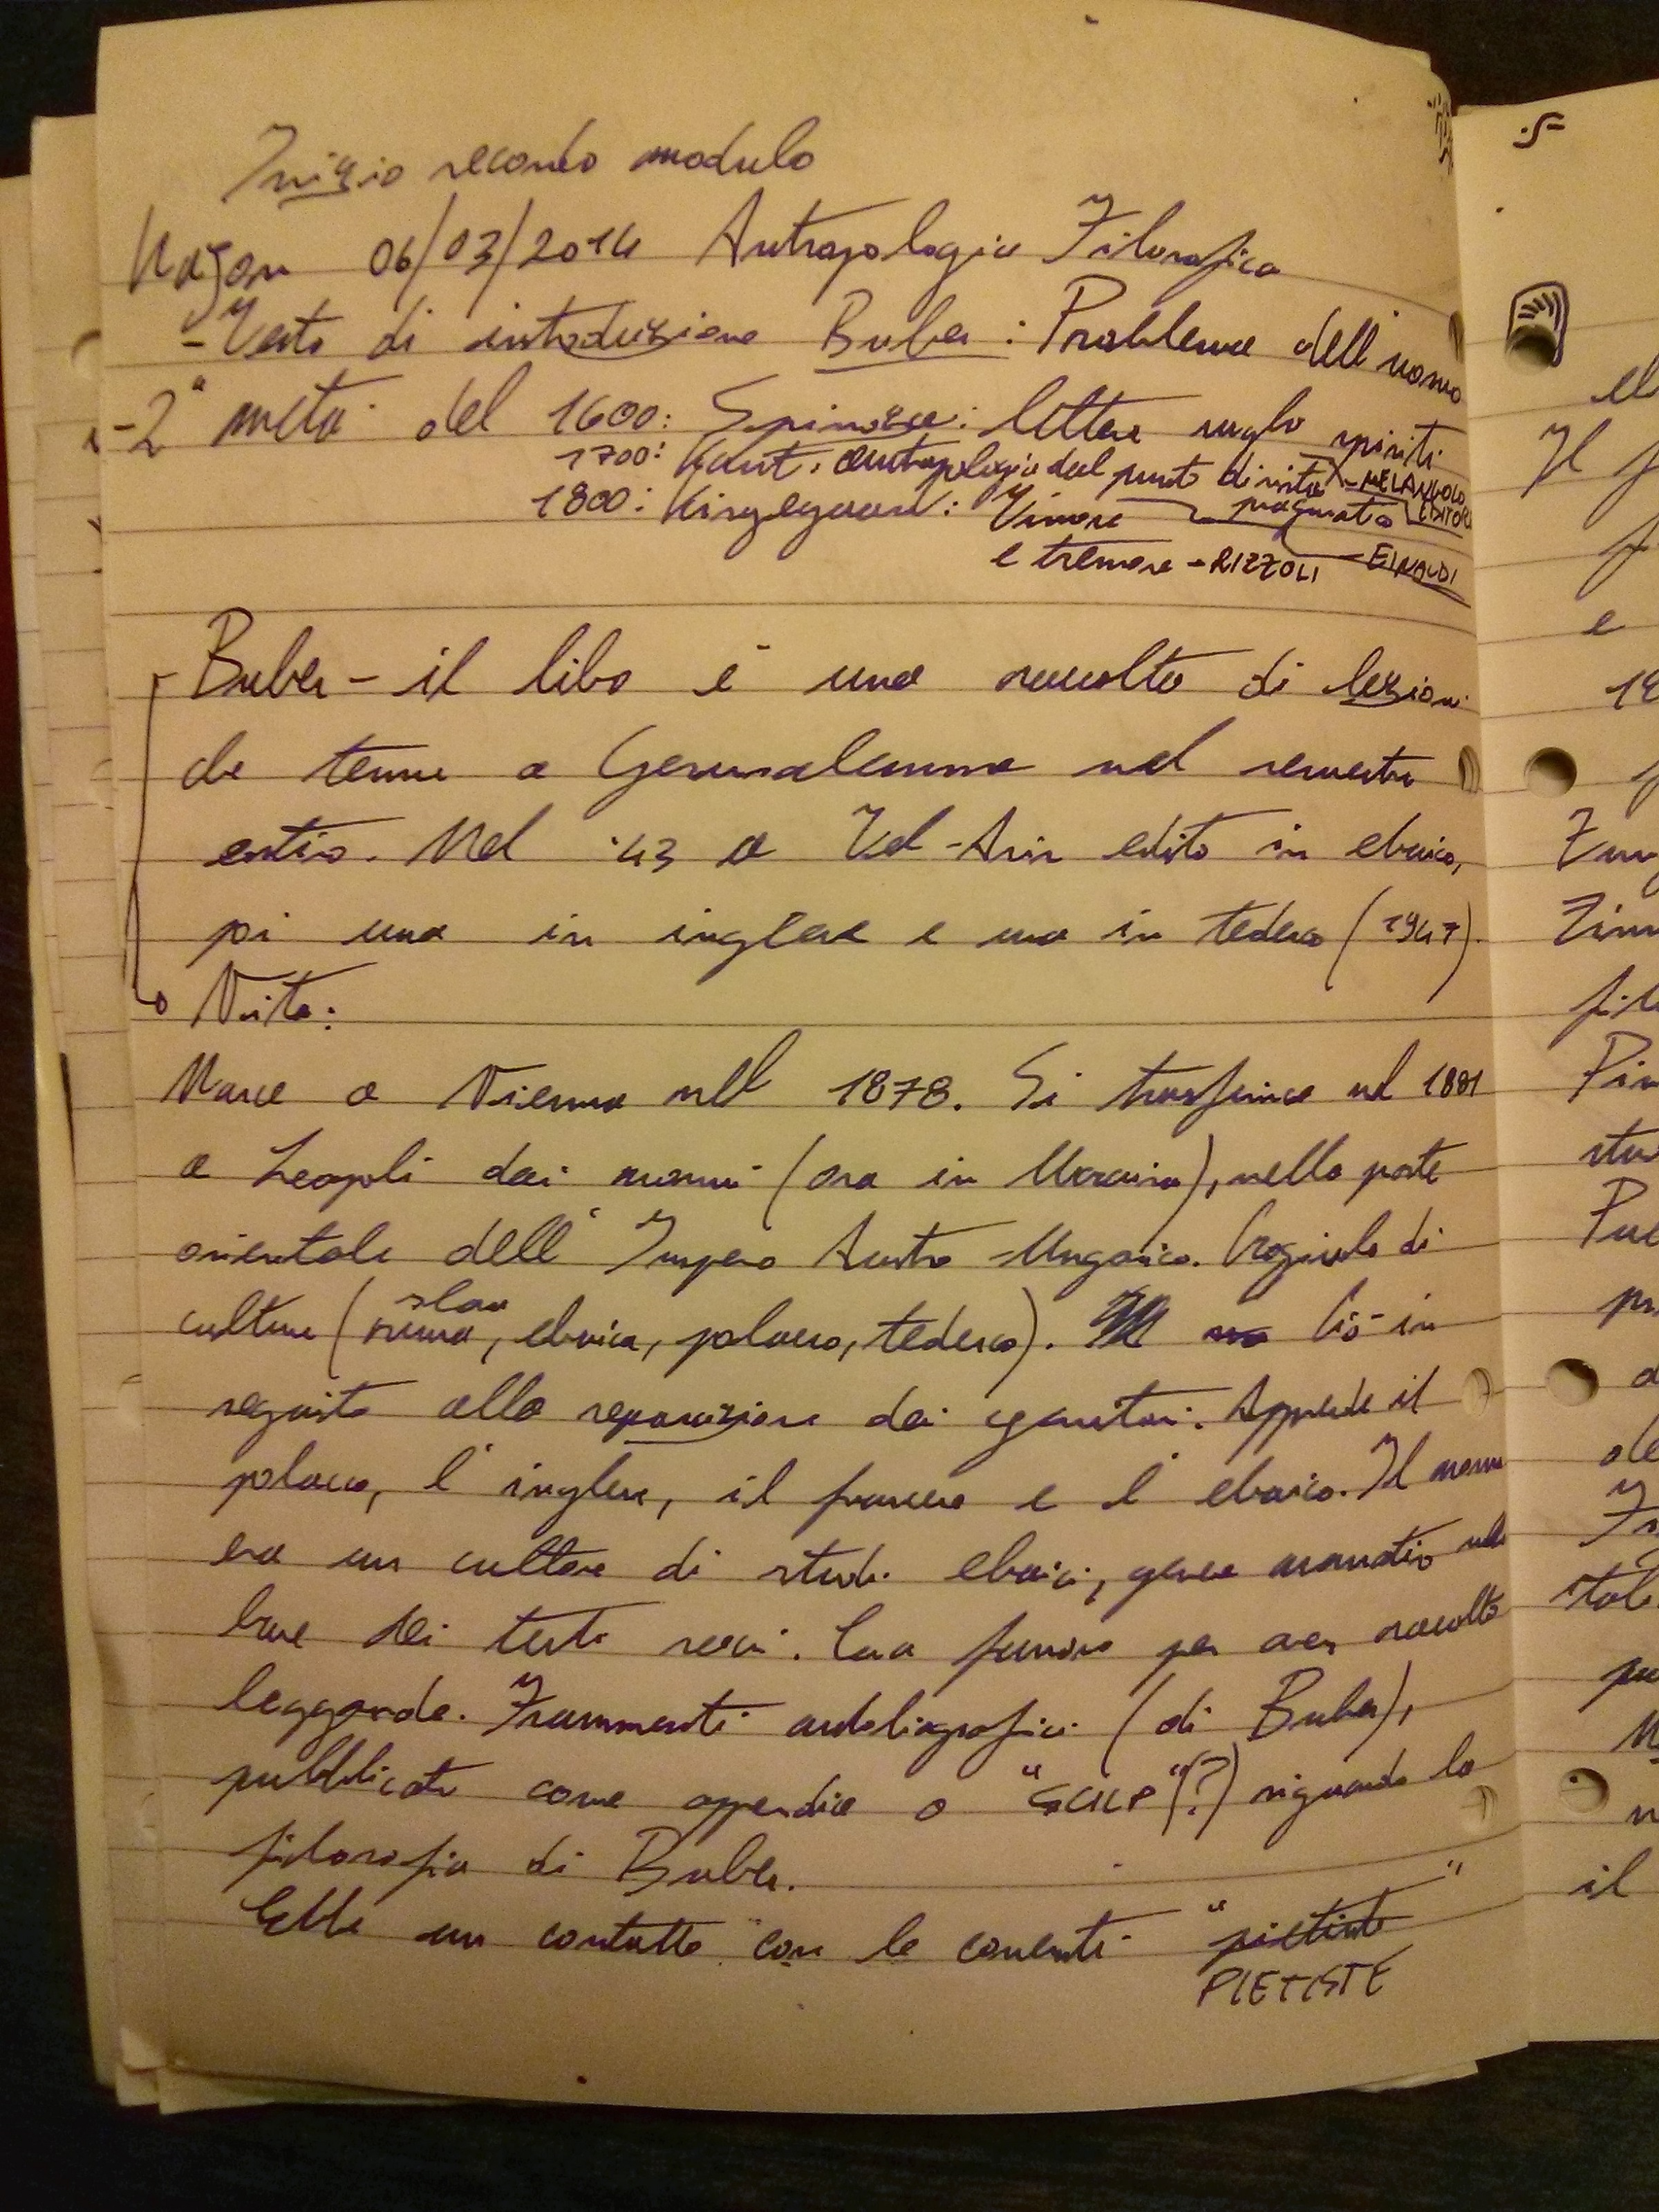 Inizio secondo modulo
06/03/2014 Antropologia Filosofica
- Testo di introduzione Buber: Problema dell'uomo
- 2ª metà del 1600: Spinoza: lettere sugli spiriti - MELANGOLO EDITORE
1700: Kant: antropologia dal punto di vista pragmatico - EINAUDI
1800: Kirgegaard: Timore
e tremore - RIZZOLI
- Buber - il libro è una raccolta di lezioni
che tenne a Gerusalemme nel semestre
estivo. Nel '43 a Tel-Aviv edito in ebraico,
poi una in inglese e una in tedesco (1947).
Vita:
Nasce a Vienna nel 1878. Si trasferisce nel 1881
a Leopoli dai nonni (ora in Ucraina), nella parte
orientale dell'Impero Austro-Ungarico. Crogiuolo di
culture (slava, ebraica, polacca, tedesca). Ciò in
seguito alla separazione dei genitori. Apprende il
polacco, l'inglese, il francese e l'ebraico. Il nonno
era un cultore di studi ebraici, genere narrativo sulla
base dei testi sacri. Era famoso per aver raccolto
leggende. Frammenti autobiografici (di Buber),
pubblicati come appendice a (?) riguardo la
filosofia di Buber.
Ebbe un contatto con le correnti "pietiste"
PIETISTE
el
Il
e
il